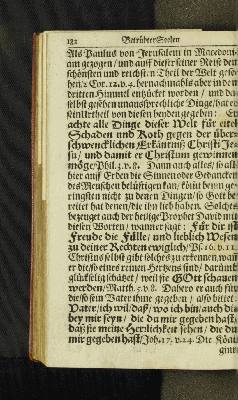 132 Betrübter Seelen
Als Paulus von Jerusalem in Macedoni-
am gezogen/ und auff dieser seiner Reise den
schönsten und reichsten Theil der Welt gese-
hen/2 Cor. 12. v. 4. hernachmahls aber in den
dritten Himmel entzückt worden/ und da-
selbst gesehen unaussprechliche Dinge/hat er
sein Urtheil von diesen beyden gegeben: Er
achte alle Dinge dieser Welt für eitel
Schaden und Koth gegen der über-
schwencklichen Erkäntnis Christi Je-
su/ und damit er Christum gewinnen
möge/Phil. 3. v. 8. Dann auch alles/ so allhie
hier auff Erden die Sinnen oder Gedancken
des Menschen belüstigen kan/ kömt dem ge-
ringsten nicht zu denen Dingen/ so Gott be-
reitet hat denen/ die ihn lieben. Solches
bezeuget auch der heilige Prophet David mit
diesen Worten/ wanner sagt: Für dir ist
Freude die Fülle/ und lieblich Wesen
zu deiner Rechten ewiglich/Ps. 16. v. 11.
Christus selbst gibt solches zu erkennen, wann
er die/so eines reinen Hertzens sind/ darumb
glückselig schätzet/ weil sie GOtt schauen
werden/Matth. 5. v. 8. Dahero er auch für
die/so sein Vater ihme gegeben/ also bittet:
Vater/ich wil/daß/ wo ich bin/auch die
bey mir seyn/ die du mir gegeben hast/
daß sie meine Herrlichkeit sehen/ die du
mir gegeben hast/Joh. 17. v. 24. Die Köni-
ginn